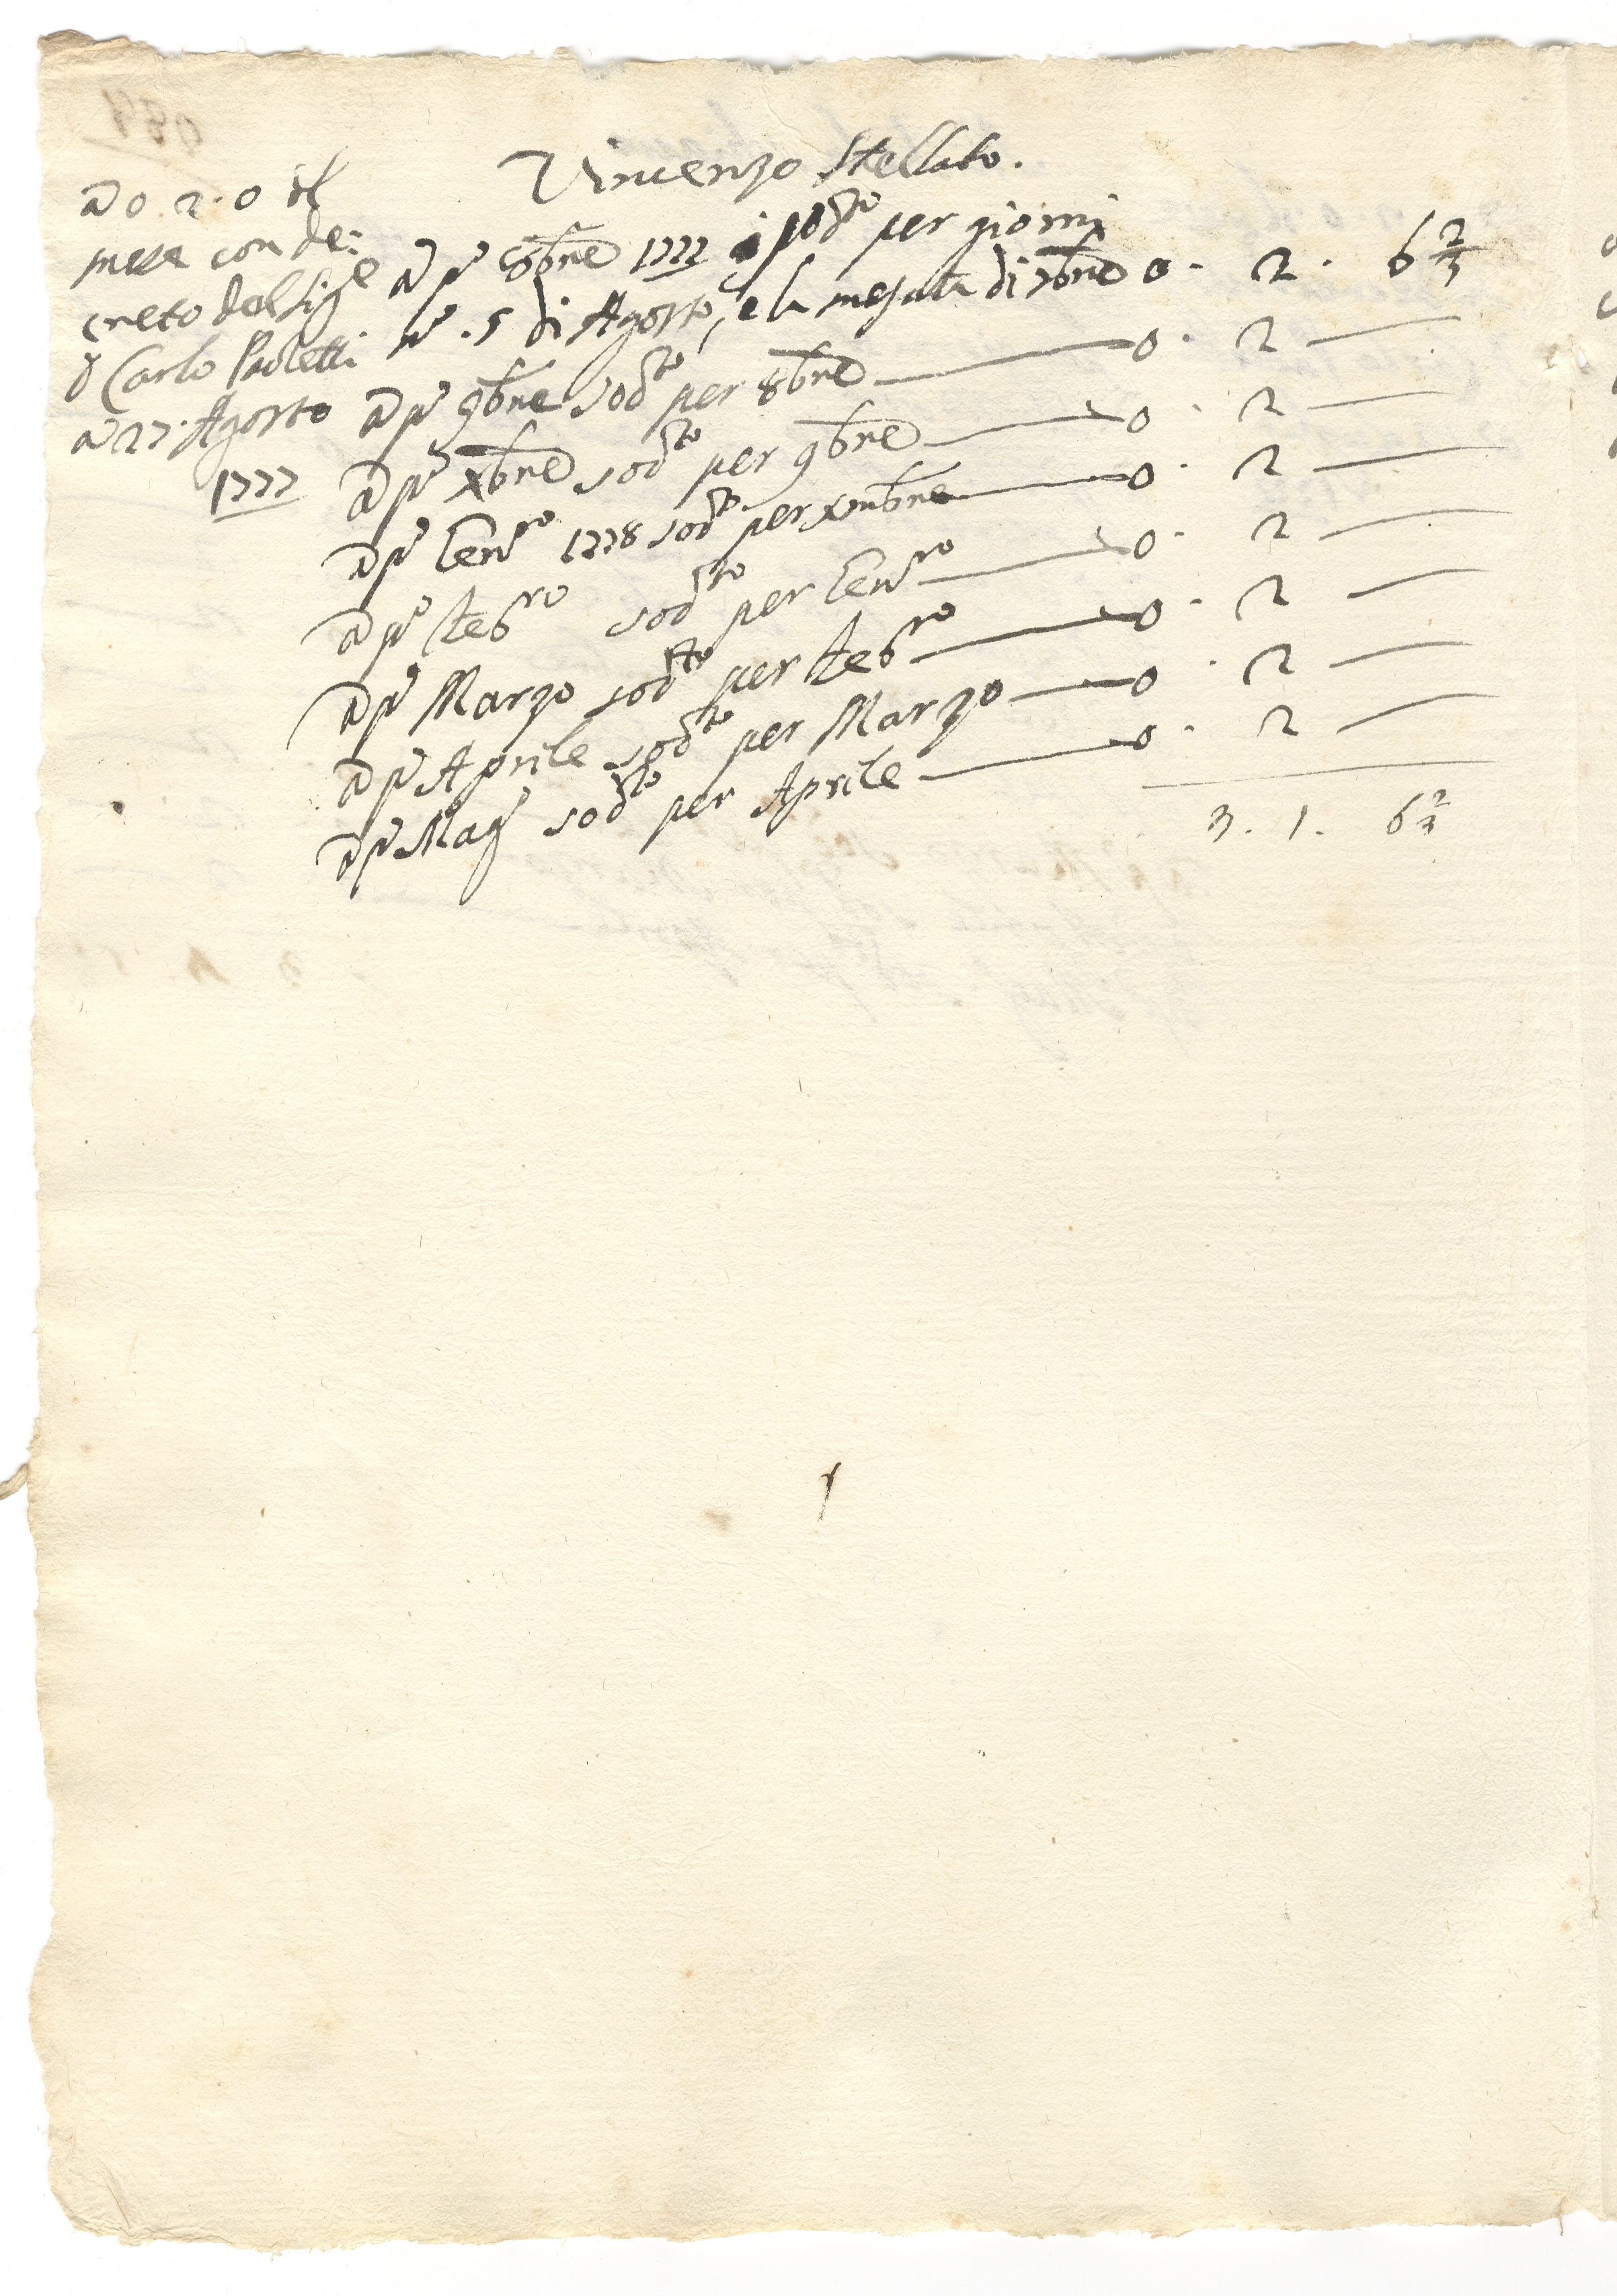 Vincenzo Stellato.
a 0. 2. 0 il
mese con de:
creto del Sig.e
D Carlo Paoletti
a 27. Agosto
1777
a p.o 8bre 1777 sod.to per giorni
n.o 5 di Agosto, e la mesata di 7bre 0. 2. 6 2/3
a p.o 9bre sod.to per 8bre — 0. 2 —
a p.o Xbre sod.to per 9bre — 0. 2 —
a p.o Gen.ro 1778 sod.to per Xmbre — 0. 2 —
a p.o Feb.ro sod.to per Gen.ro — 0. 2 —
a p.o Marzo sod.to per Feb.ro — 0. 2 —
a p.o Aprile sod.to per Marzo — 0. 2 —
a p.o Mag.o sod.to per Aprile — 0. 2 —
3. 1. 6 2/3